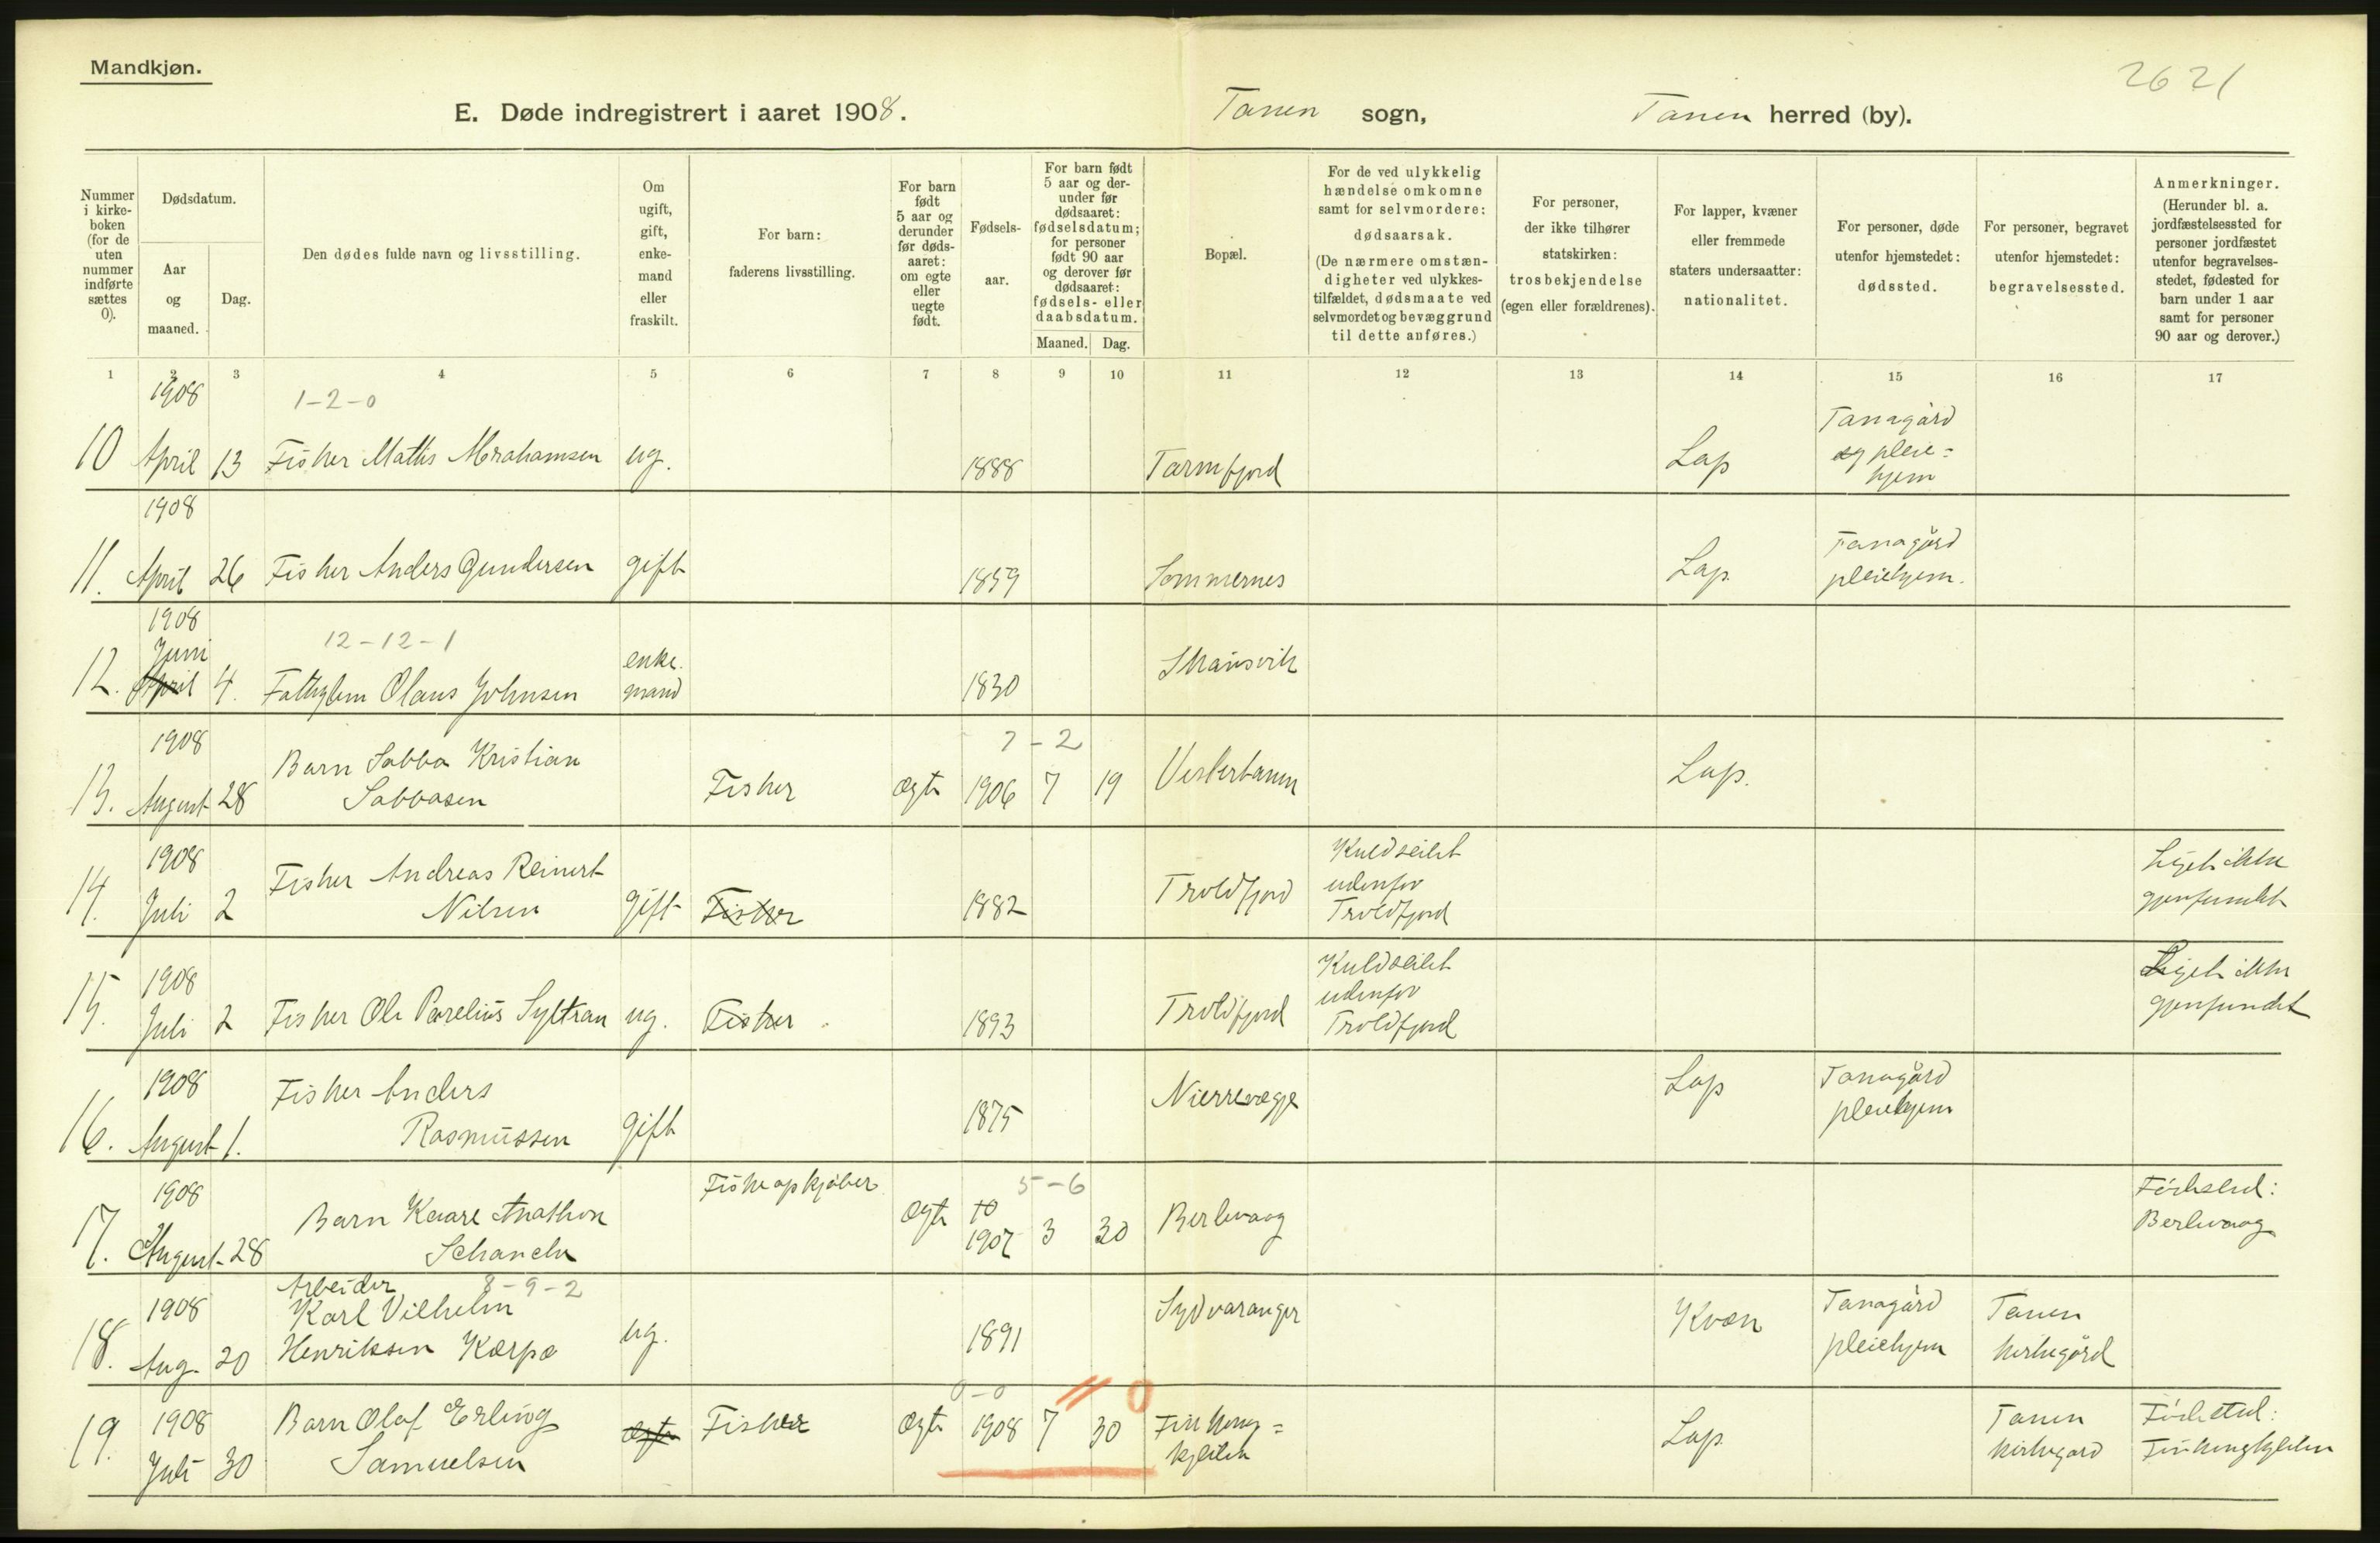 Mandkjøn.
2621
E. Døde indregistrert i aaret 1908.
Tanen sogn,
Tanen herred (by).
Nummer i kirke-boken (for de uten nummer indførte sættes 0).
Dødsdatum.
Aar og maaned.
Dag.
Den dødes fulde navn og livsstilling.
Om ugift, gift, enke-mand eller fraskilt.
For barn: faderens livsstilling.
For barn født 5 aar og derunder før døds-aaret: om egte eller uegte født.
Fødsels-aar.
For barn født 5 aar og der-under før dødsaaret: fødselsdatum; for personer født 90 aar og derover før dødsaaret: fødsels- eller daabsdatum.
Maaned. Dag.
Bopæl.
For de ved ulykkelig hændelse omkomne samt for selvmordere: dødsaarsak. (De nærmere omstæn-digheter ved ulykkes-tilfældet, dødsmaate ved selvmordet og bevæggrund til dette anføres.)
For personer, der ikke tilhører statskirken: trosbekjendelse (egen eller forældrenes).
For lapper, kvæner eller fremmede staters undersaatter: nationalitet.
For personer, døde utenfor hjemstedet: dødssted.
For personer, begravet utenfor hjemstedet: begravelsessted.
Anmerkninger. (Herunder bl. a. jordfæstelsessted for personer jordfæstet utenfor begravelses-stedet, fødested for barn under 1 aar samt for personer 90 aar og derover.)
1 2 3 4 5 6 7 8 9 10 11 12 13 14 15 16 17
1908 1-2-0
10 April 13 Fisker Mathis Abrahamsen ug. 1888 Tarmfjord Lap Tanagård og pleie=hjem
1908
11. April 26 Fisker Anders Gundersen gift 1859 Sommernes Lap. Tanagård pleiehjem.
1908 12-12-1
12. Juni April 4. Olaus Johnsen enke.mand 1830
1908 7-2
13. August 28 Barn Sabba Kristian Sabbasen Fisker ægte 1906 7 19 Vestertanen Lap.
1908
14. Juli 2 Fisker Andreas Reinert Nilsen gift Fisker 1882 Troldfjord Kuldseilet udenfor Troldfjord Liget ikke gjenfundet
1908
15. Juli 2 Fisker Ole Parelius Syltran ug. Fisker 1893 Troldfjord Kuldseilet udenfor Troldfjord Liget ikke gjenfundet
1908
16. August 1. Fisker Anders Rasmussen gift 1875 Nierrevægje Lap Tanagård pleiehjem
1908 5-6
17. August 28 Barn Kaare Anathon Schanche Fiskeopkjøber ægte 1907 3 30 Berlevaag Fødested: Berlevaag
1908 8-9-2
18. Aug. 20 Arbeider Karl Vilhelm Henriksen Karpa ug. 1891 Sydvaranger Kvæn Tanagård pleiehjem Tanen kirkegård
0-0 11 0
19. 1908 Juli 30 Barn Olaf Erling Samuelsen ægte Fisker ægte 1908 7 30 Finkong=kjeilen Lap Tanen kirkegaard Fødested: Finkongkjeilen